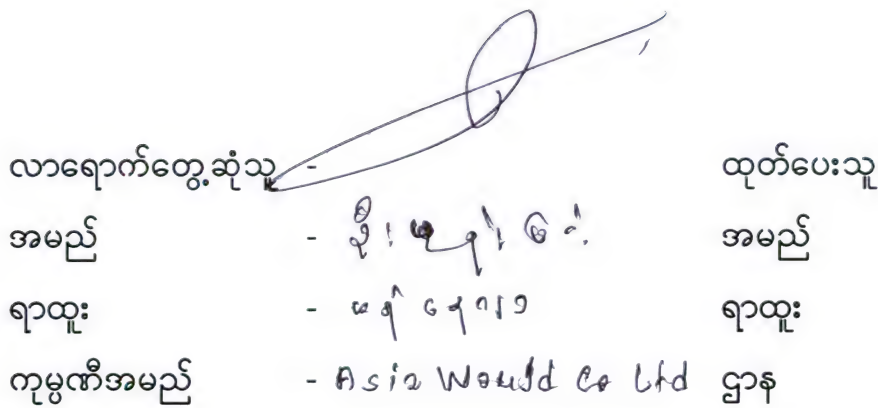 လာရောက်တွေ့ဆုံသူ - ထုတ်ပေးသူ
အမည် - ဦး အမည်
ရာထူး - မန်နေဂျာ ရာထူး
ကုမ္ပဏီအမည် - Asia Would Co Ltd ဌာန